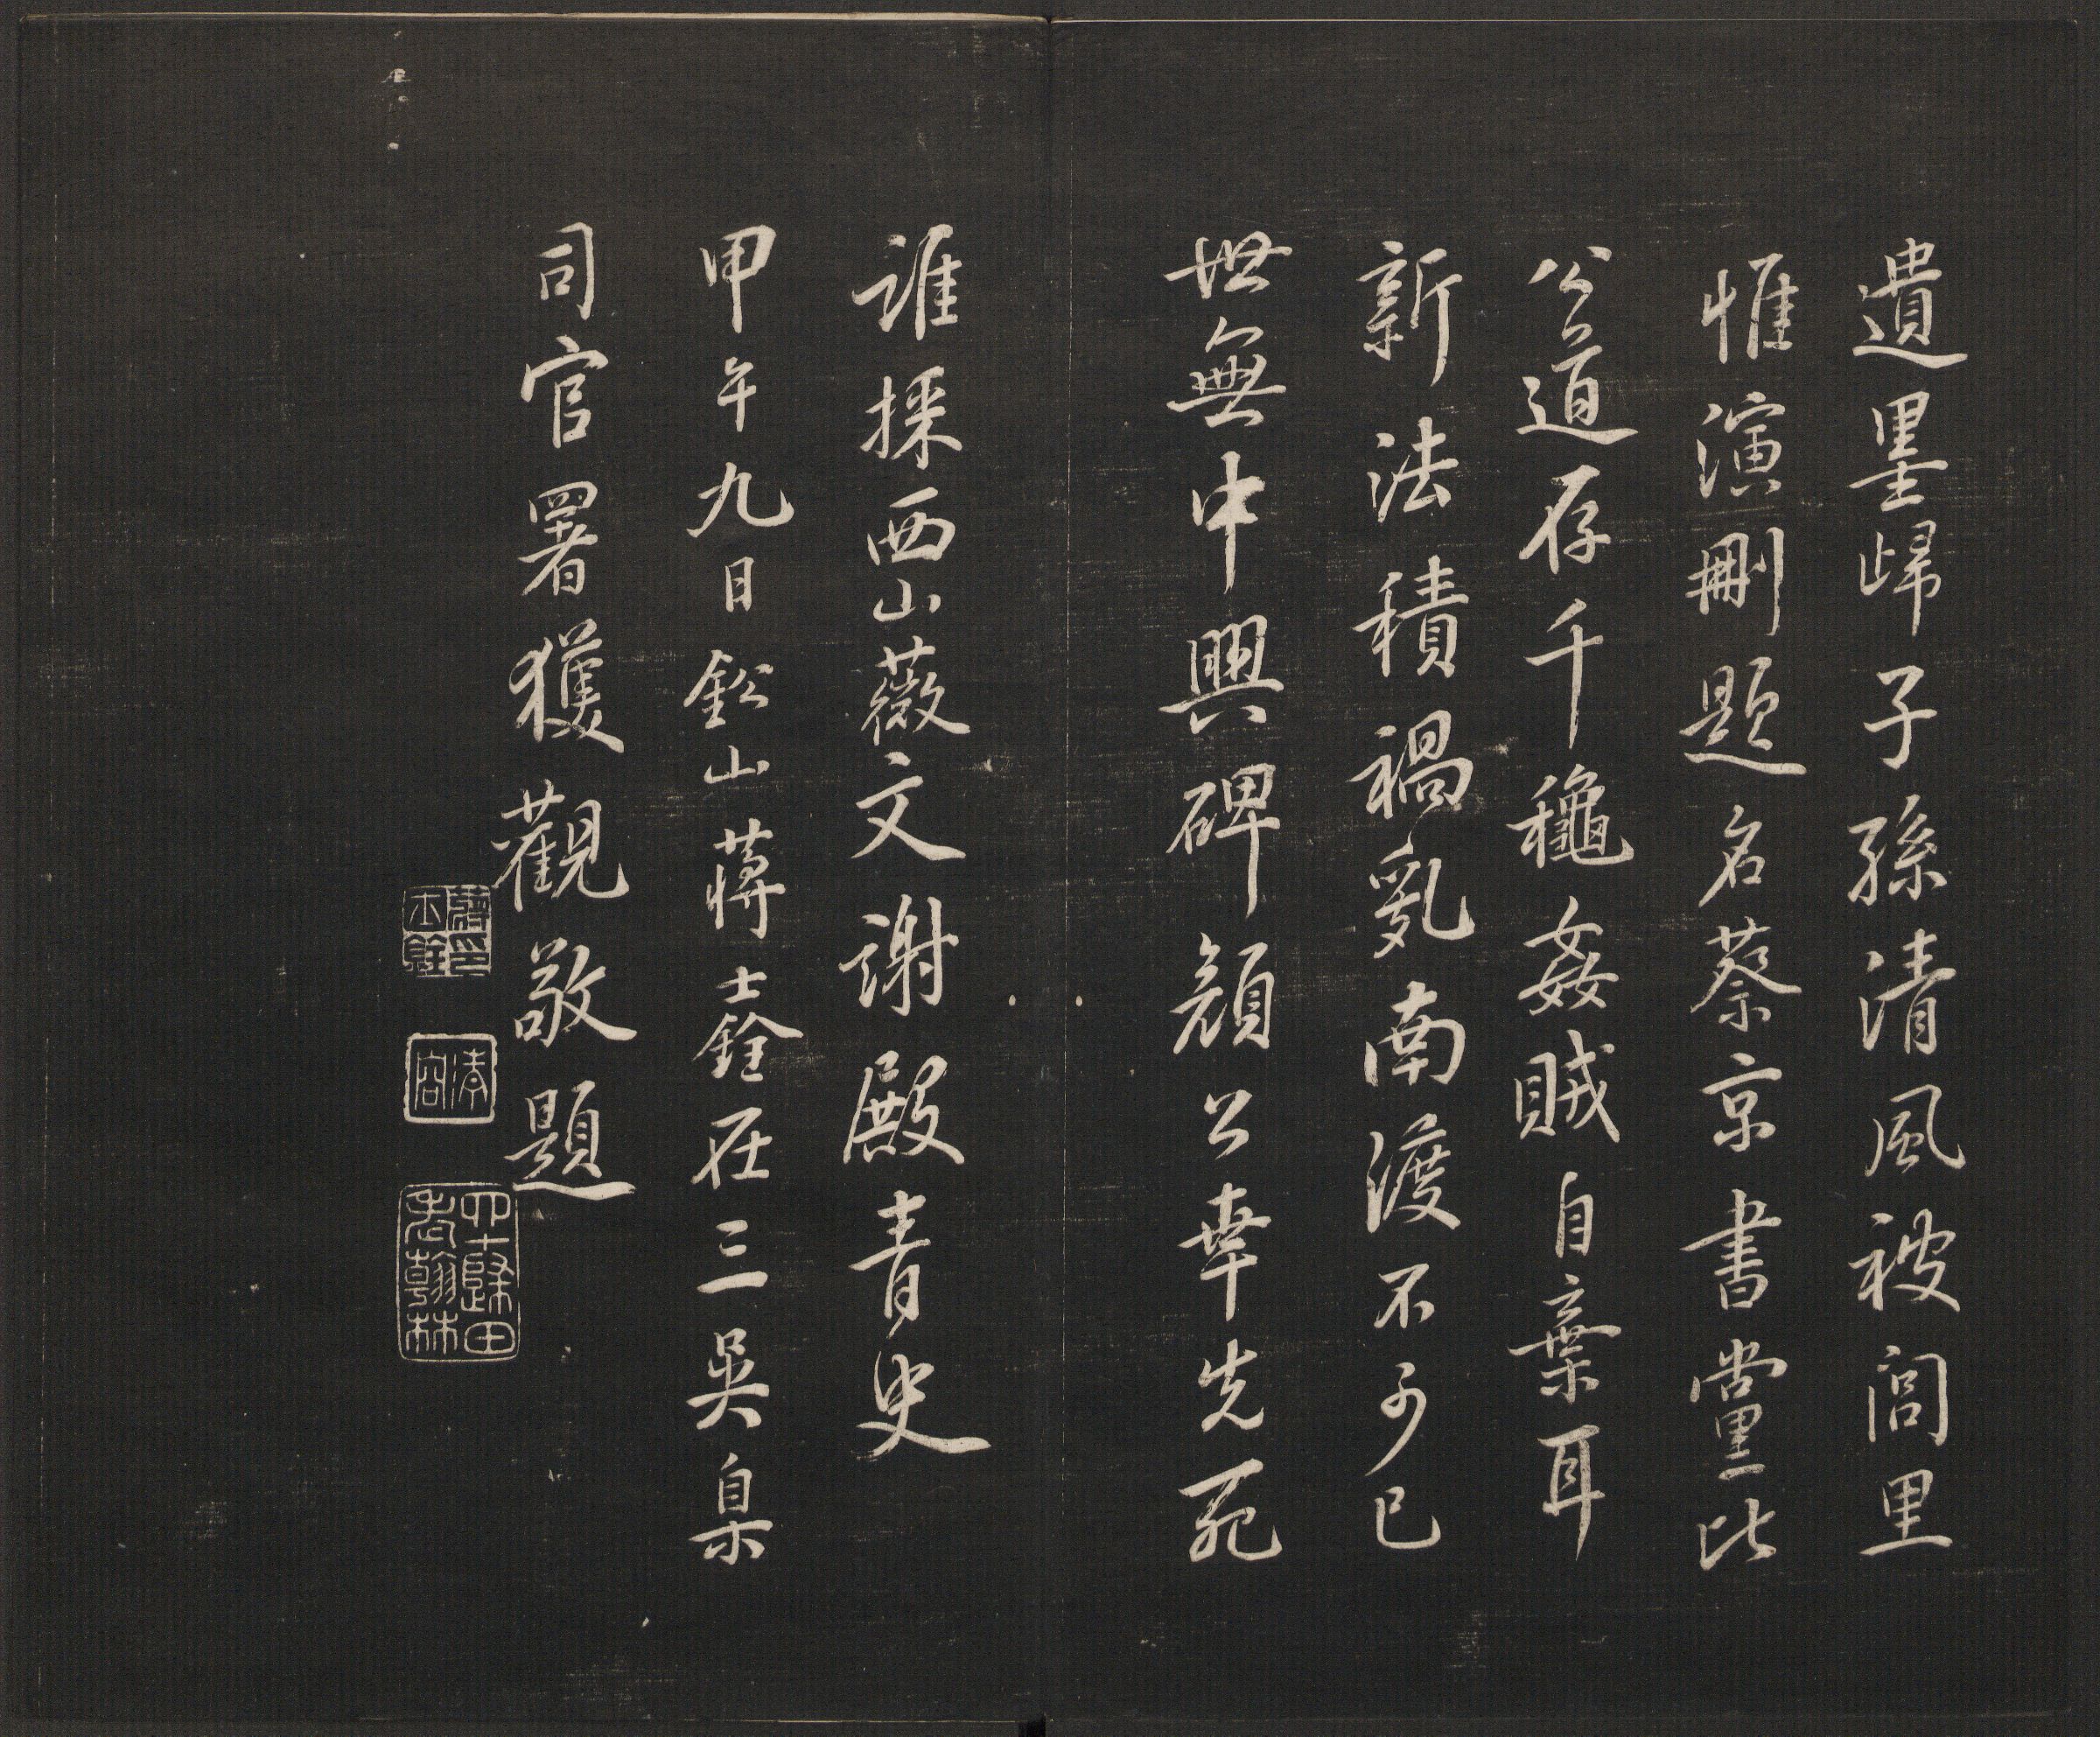 遺墨歸子孫清風被閭里
惟演刪題名蔡京書黨比
公道存千龝姦賊自棄耳
新法積禍亂南渡不可已
世無中興碑顔公幸先死
誰採西山薇文謝殿青史
甲午九日鉛山蔣士銓在三吴臬
司官署獲觀敬題
蔣印士銓
清容
四十歸田老翰林